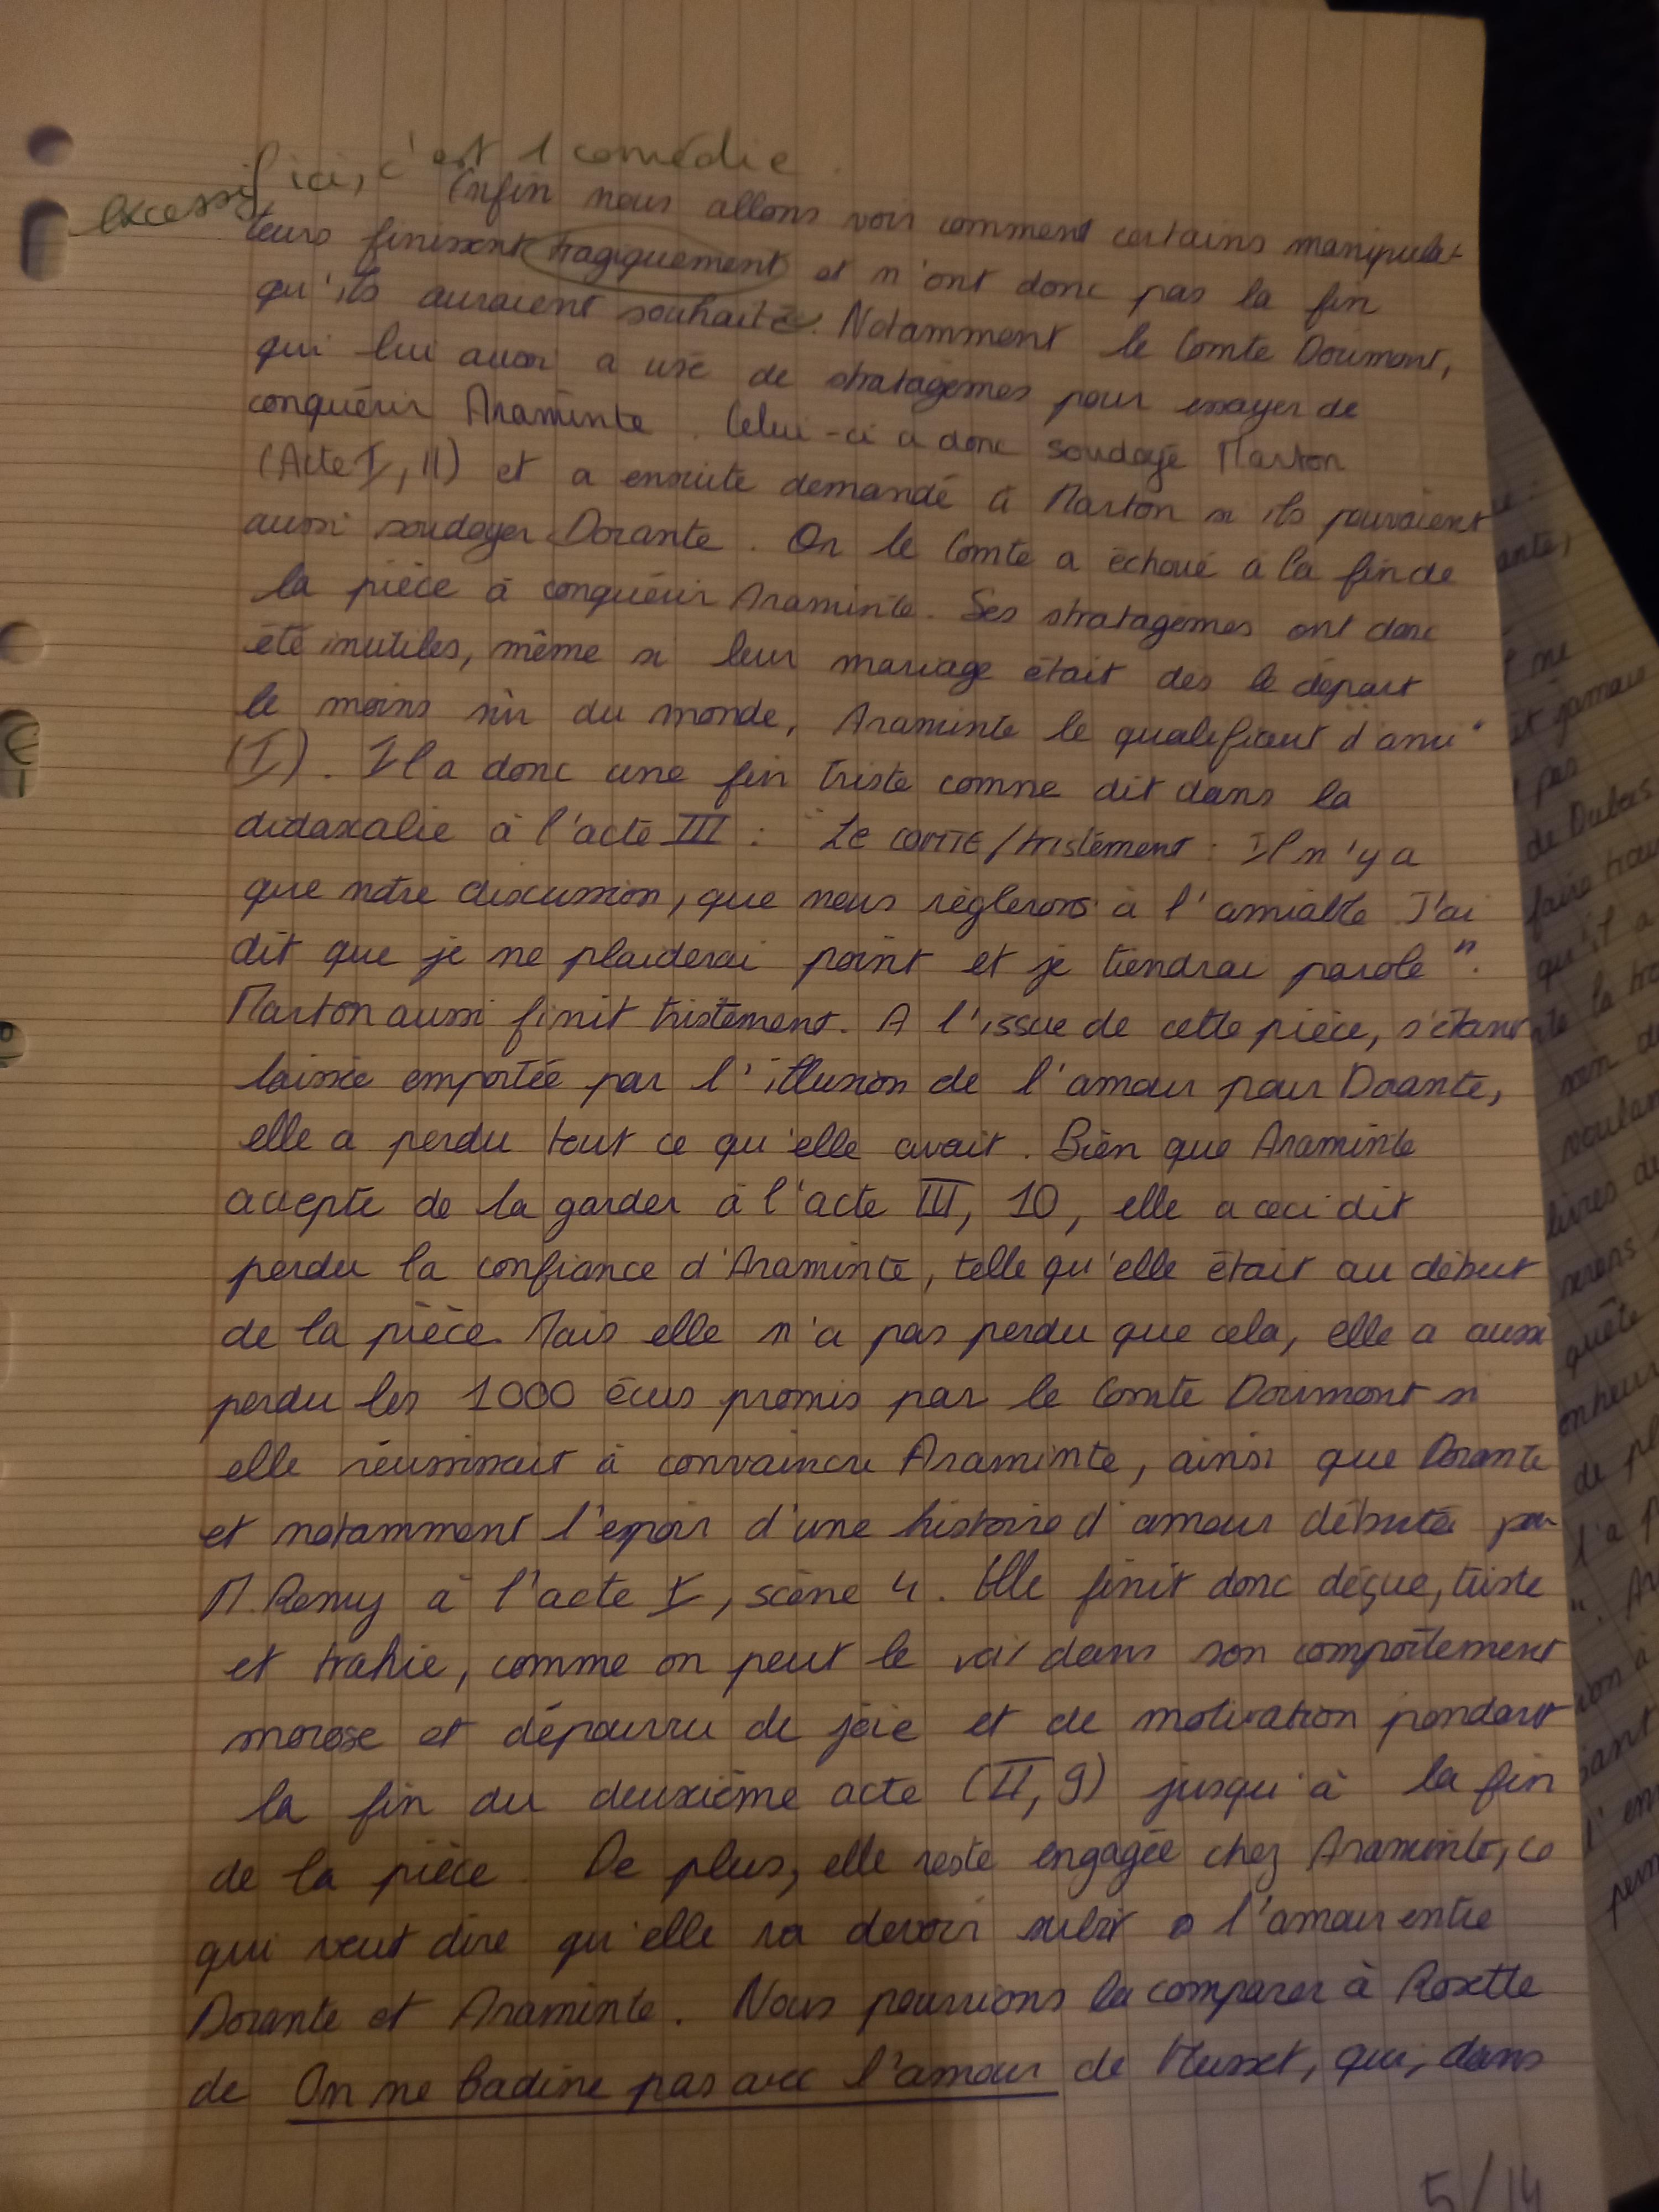 excessif ici, c'est 1 comédie.
Enfin nous allons voir comment certains manipula-
teurs finissent tragiquement et n'ont donc pas la fin
qu'ils auraient souhaité. Notamment le Comte Dorimont,
qui lui aussi a usé de stratagèmes pour essayer de
conquérir Araminte. Celui-ci a donc soudoyé Marton
(Acte I, 11) et a ensuite demandé à Marton si ils pouvaient
aussi soudoyer Dorante. Or le Comte a échoué à la fin de
la pièce à conquérir Araminte. Ses stratagèmes ont donc
été inutiles, même si leur mariage était dès le départ
le moins sûr du monde, Araminte le qualifiant d'ami"
(I). Il a donc une fin triste comme dit dans la
didascalie à l'acte III : "Le COMTE, tristement : Il n'y a
que notre discussion, que nous règlerons à l'amiable J'ai
dit que je ne plaiderai point et je tiendrai parole".
Marton aussi finit tristement. A l'issue de cette pièce, s'étant
laissée emportée par l'illusion de l'amour pour Dorante,
elle a perdu tout ce qu'elle avait. Bien que Araminte
accepte de la garder à l'acte III, 10, elle a ceci dit
perdu la confiance d'Araminte, telle qu'elle était au début
de la pièce. Mais elle n'a pas perdu que cela, elle a aussi
perdu les 1000 écus promis par le Comte Dorimont si
elle réussissait à convaincre Araminte, ainsi que Dorante
et notamment l'espoir d'une histoire d'amour débutée par
M. Remy à l'acte I, scène 4. Elle finit donc déçue, triste
et trahie, comme on peut le voir dans son comportement
morose et dépourvu de joie et de motivation pendant
la fin du deuxième acte (II, 9) jusqu'à la fin
de la pièce. De plus, elle reste engagée chez Araminte, ce
qui veut dire qu'elle va devoir subir l'amour entre
Dorante et Araminte. Nous pourrions la comparer à Rosette
de On ne badine pas avec l'amour de Musset, qui, dans
5/14